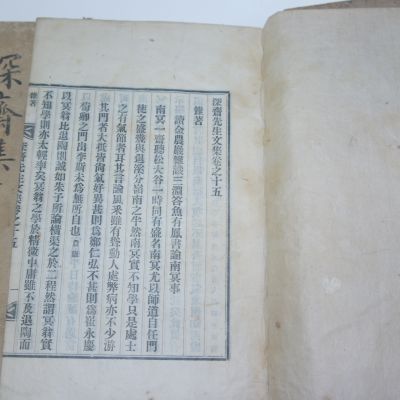 深齋先生文集卷之十五
雜著
讀金農巖雜識三淵答魚有鳳書論南冥事
南冥一齋聽松大谷一時同有盛名南冥尤以師道自任門
徒之盛幾與退溪分嶺南之半然南冥實不知學只是處士
之有氣節者耳其言論風采雖有聳動人處弊病亦不少游
其門者大抵皆尚氣好異甚則爲鄭仁弘不甚則爲崔永慶
以荀卿之門出李斯未爲無所自也
以冥翁比退陶則誠如朱子所論橫渠之於二程然謂冥翁實
不知學則亦太輕率矣冥翁之學於精微中庸雖不及退陶而
雜著
深齋先生文集卷十五
深齋集